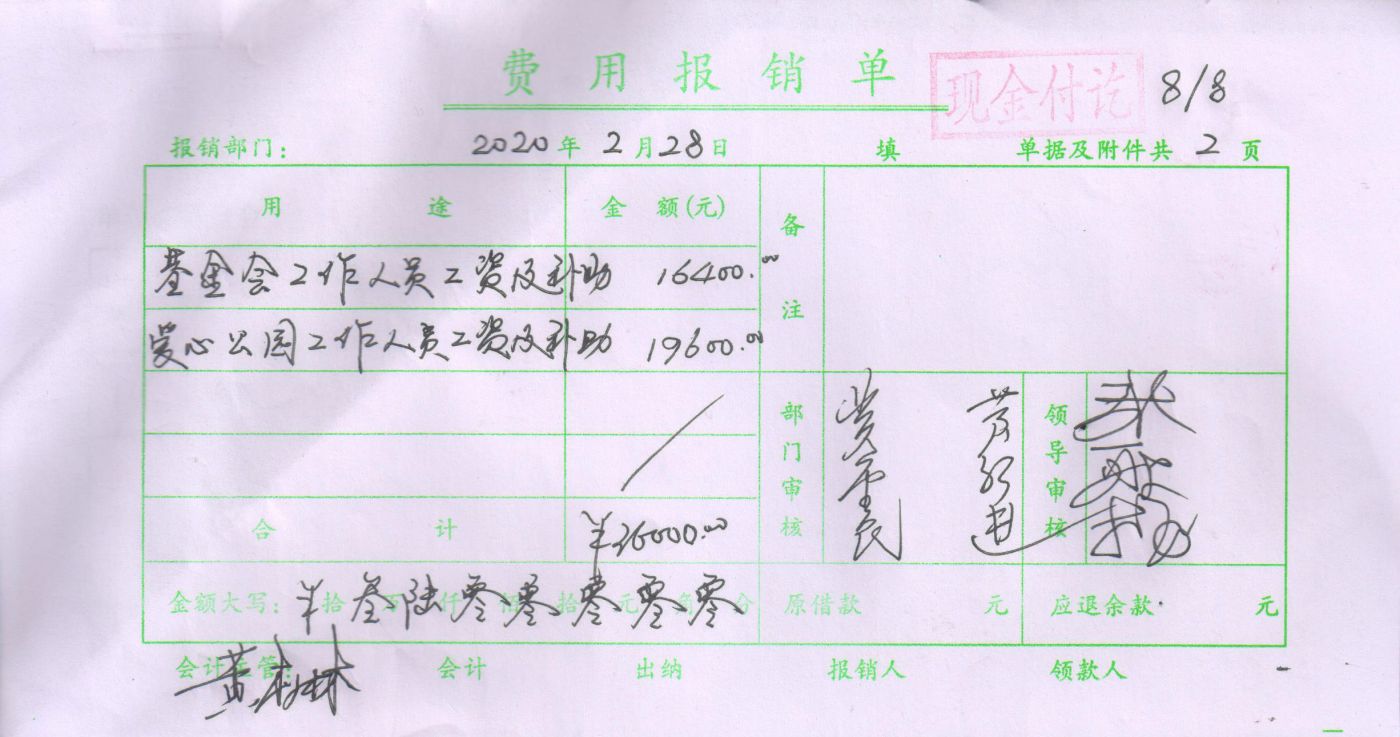 费用报销单
现金付讫 8/8
报销部门： 2020年2月28日 填 单据及附件共2页
用途 金额(元) 备注
基金会工作人员工资及补助 16400.00
爱心公园工作人员工资及补助 19600.00
部门审核 领导审核
合计 ¥36000.00
金额大写：¥拾叁万陆仟零佰零拾零元零角零分 原借款 元 应退余款 元
会计主管： 会计 出纳 报销人 领款人
黄林林